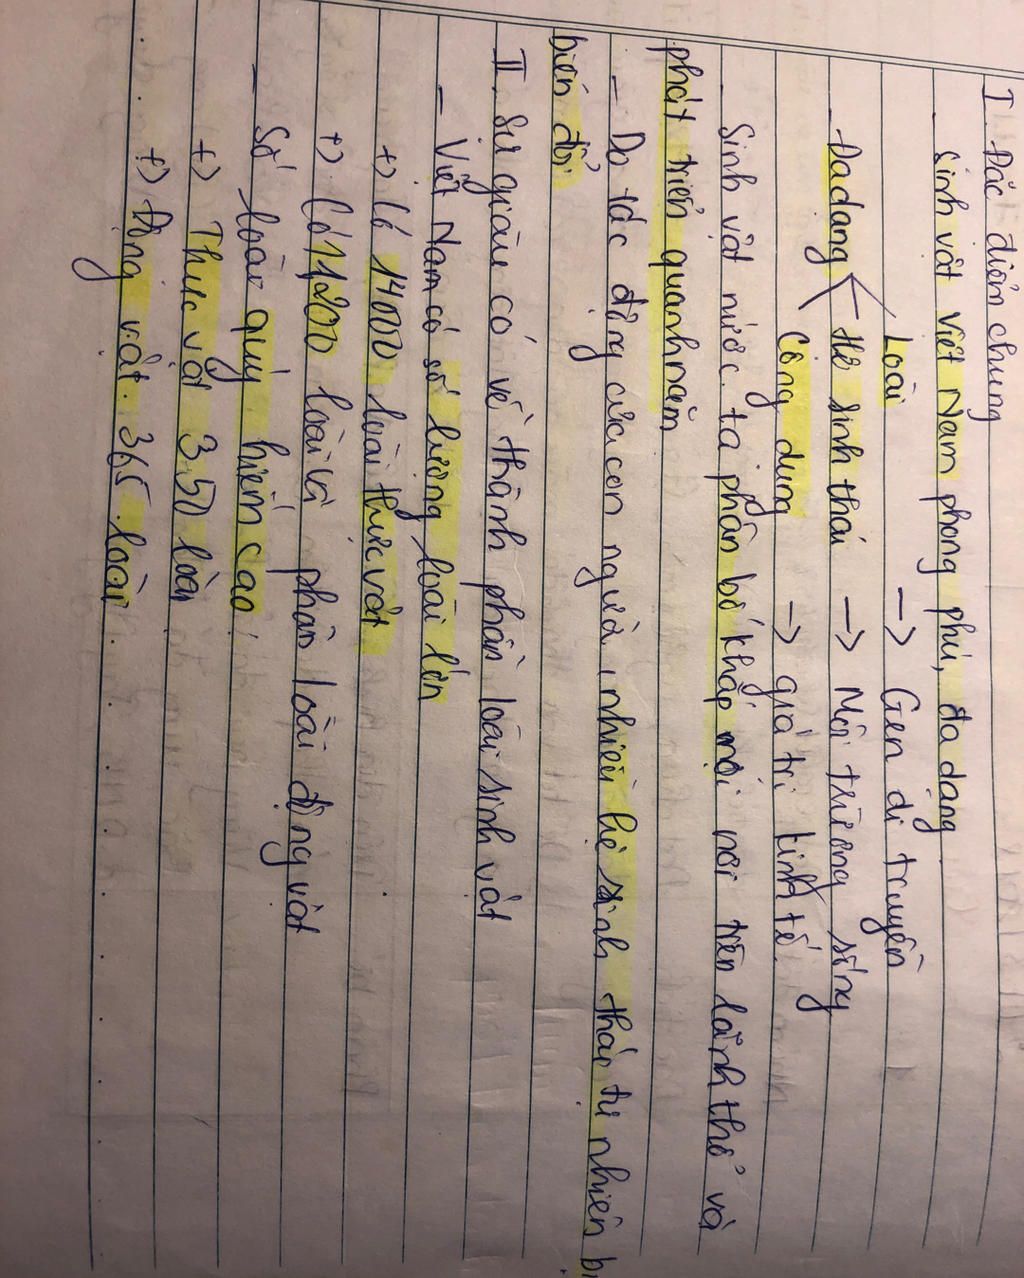 I. Đặc điểm chung
- Sinh vật Việt Nam phong phú, đa dạng
Loài → Gen di truyền
- Đa dạng ← Hệ sinh thái → Môi trường sống
Công dụng → giá trị kinh tế.
- Sinh vật nước ta phân bố khắp mọi nơi trên lãnh thổ và
phát triển quanh năm
- Do tác động của con người, nhiều hệ sinh thái tự nhiên bị
biến đổi
II. Sự giàu có về thành phần loài sinh vật
- Việt Nam có số lượng loài lớn
+) Có 14000 loài thực vật
+) Có 11,200 loài và phân loài động vật
- Số loài quý hiếm cao
+) Thực vật 350 loài
+) Động vật 365 loài